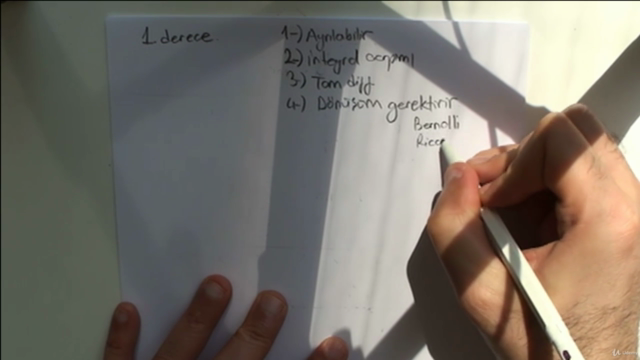 1 derece
1-) Ayrılabilir
2-) integral çarpanı
3-) Tam diff
4-) Dönüşüm gerektirir
Bernolli
Ricca